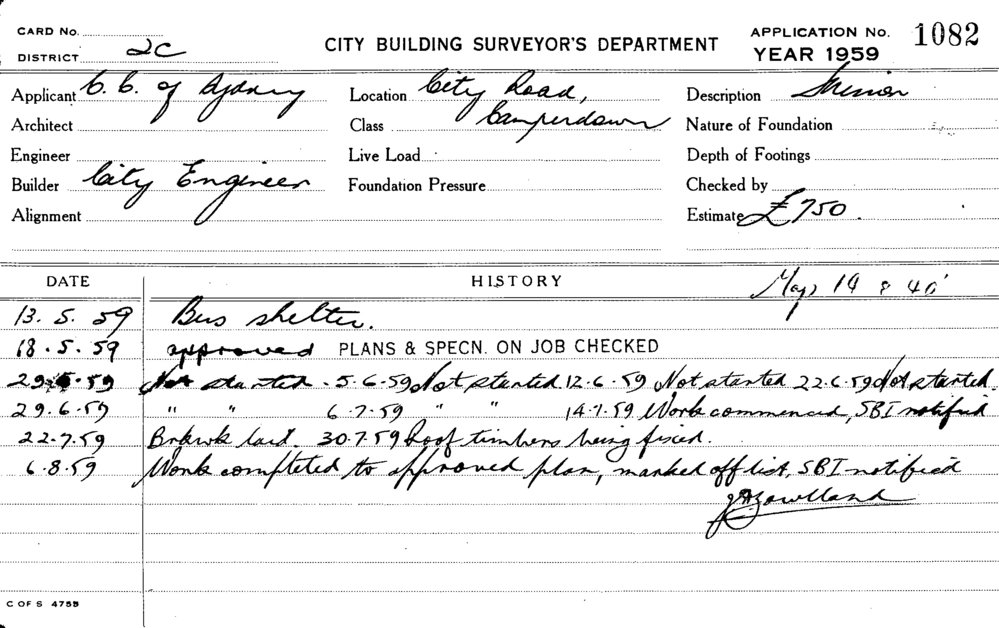 CARD No.
DISTRICT 2C
CITY BUILDING SURVEYOR'S DEPARTMENT
APPLICATION No. 1082
YEAR 1959
Applicant C. C. of Sydney
Location City Road,
Description Minor
Architect
Class Camperdown
Nature of Foundation
Engineer
Live Load
Depth of Footings
Builder City Engineer
Foundation Pressure
Checked by
Alignment
Estimate £750.
DATE
HISTORY
Maps 19 & 40
13.5.59 Bus shelter.
18.5.59 approved PLANS & SPECN. ON JOB CHECKED
29.5.59 Not started. 5.6.59 Not started 12.6.59 Not started 22.6.59 Not started.
29.6.59 " " 6.7.59 " " 14.7.59 Work commenced, SBI notified
22.7.59 Brkwk laid. 30.7.59 Roof timbers being fixed.
6.8.59 Work completed to approved plan, marked off list, SBI notified
C OF S 4755